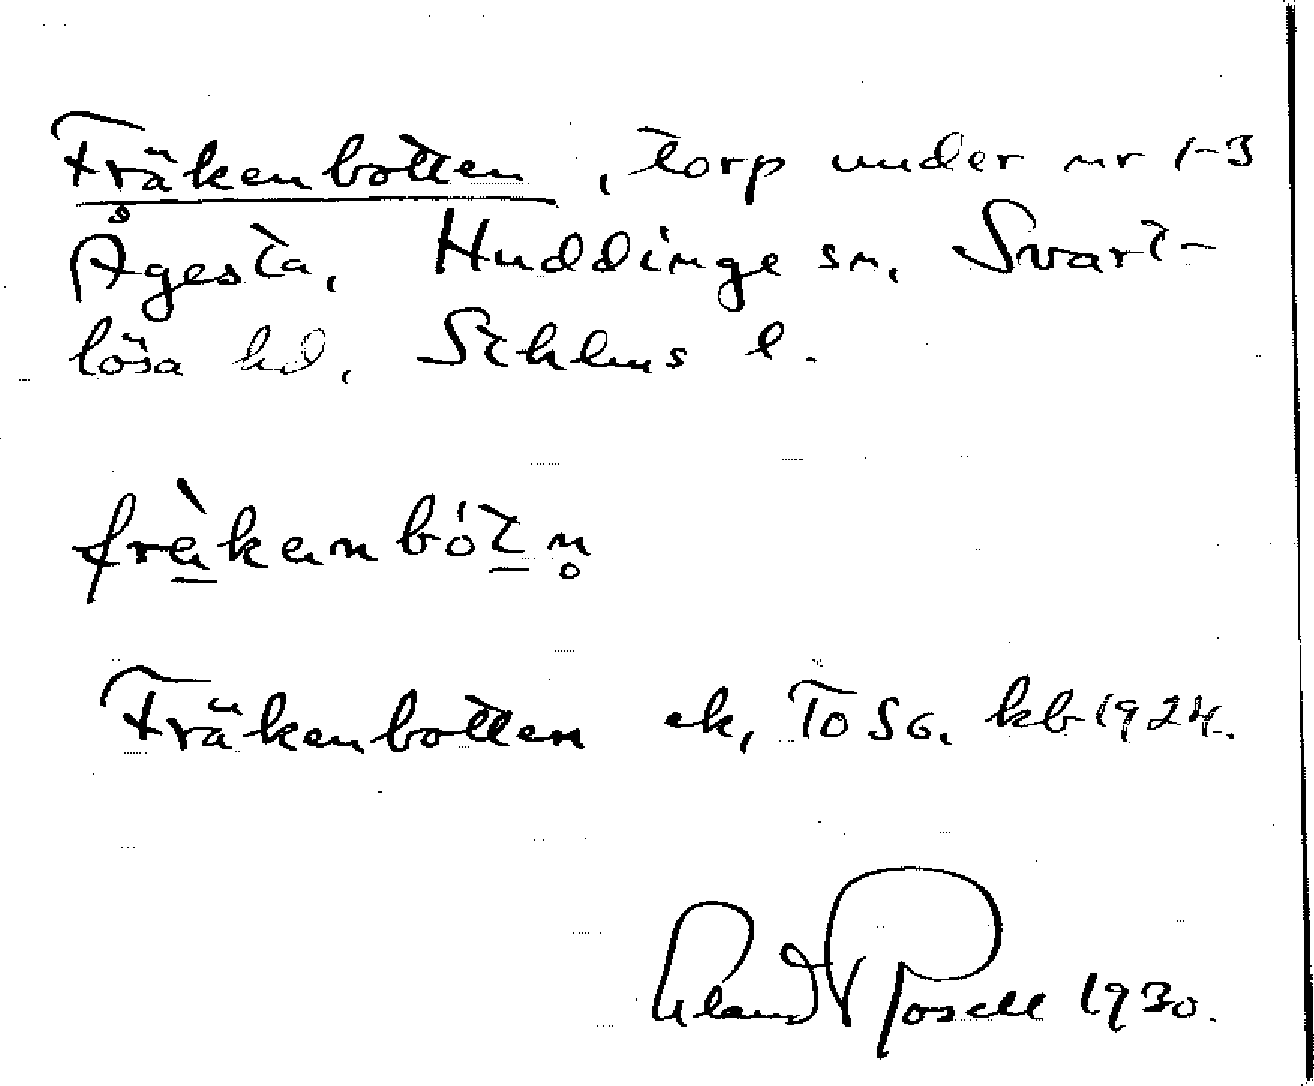 Fräkenbotten, torp under nr 1-3
Ågesta, Huddinge sn, Svart-
lösa hd, Sthlms l.
fràkenbótn̥
Fräkenbotten ek, To SG. kb 1924.
Rosell 1930.